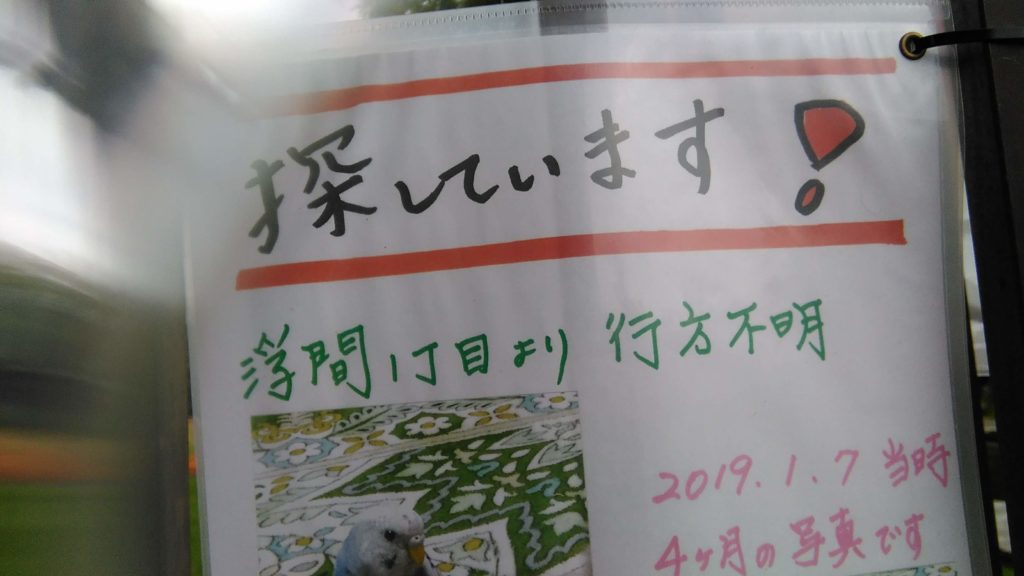 探しています!
浮間1丁目より 行方不明
2019.1.7 当時
4ヶ月の写真です